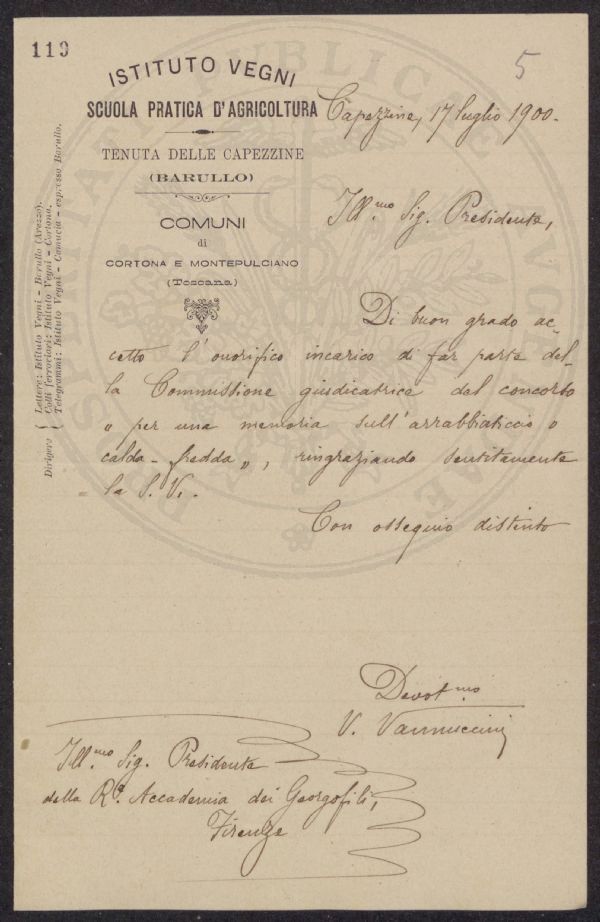 119
5
ISTITUTO VEGNI
SCUOLA PRATICA D'AGRICOLTURA
TENUTA DELLE CAPEZZINE
(BARULLO)
COMUNI
di
CORTONA E MONTEPULCIANO
(Toscana)
Dirigere { Lettere: Istituto Vegni - Barullo (Arezzo).
Colli ferroviari: Istituto Vegni - Cortona.
Telegrammi: Istituto Vegni - Camucia - espresso Barullo.
Capezzine, 17 luglio 1900.
Ill.mo Sig. Presidente,
Di buon grado ac-
cetto l'onorifico incarico di far parte del-
la Commissione giudicatrice del concorso
" per una memoria sull'arrabbiaticcio o
calda-fredda ", ringraziando sentitamente
la S. V.
Con ossequio distinto
Devot.mo
V. Vannuccini
Ill.mo Sig. Presidente
della Rª. Accademia dei Georgofili,
Firenze